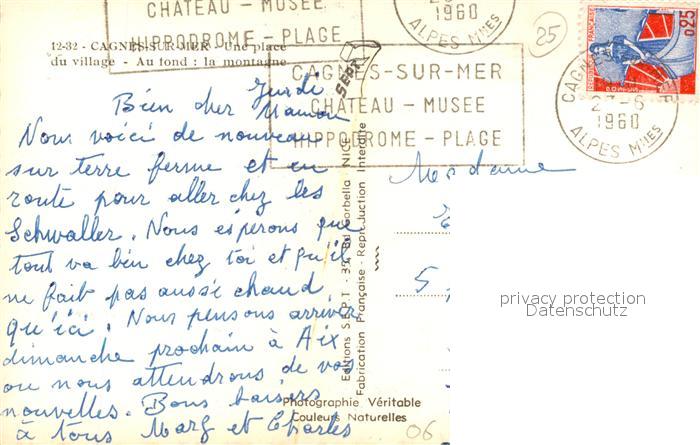 CHATEAU - MUSEE
HIPPODROME - PLAGE
1960
ALPES Mmes
25
12-32 - CAGNES-SUR-MER - Une place
du village - Au fond : la montagne
SEPT
CAGNES-SUR-MER
CHATEAU - MUSEE
HIPPODROME - PLAGE
CAGNES
27-6
1960
ALPES Mmes
0,25
Jeudi
Bien cher Maman
Nous voici de nouveau
sur terre ferme et en
route pour aller chez les
Schwaller. Nous espérons que
tout va bien chez toi et qu'il
ne fait pas aussi chaud
qu'ici. Nous pensons arriver
dimanche prochain à Aix
ou nous attendrons de vos
nouvelles. Bons baisers
à tous Marg et Charles
Editions S.E.P.T. - NICE
Fabrication Française - Reproduction Interdite
Photographie Véritable
Couleurs Naturelles
Madame
5,
privacy protection
Datenschutz
06